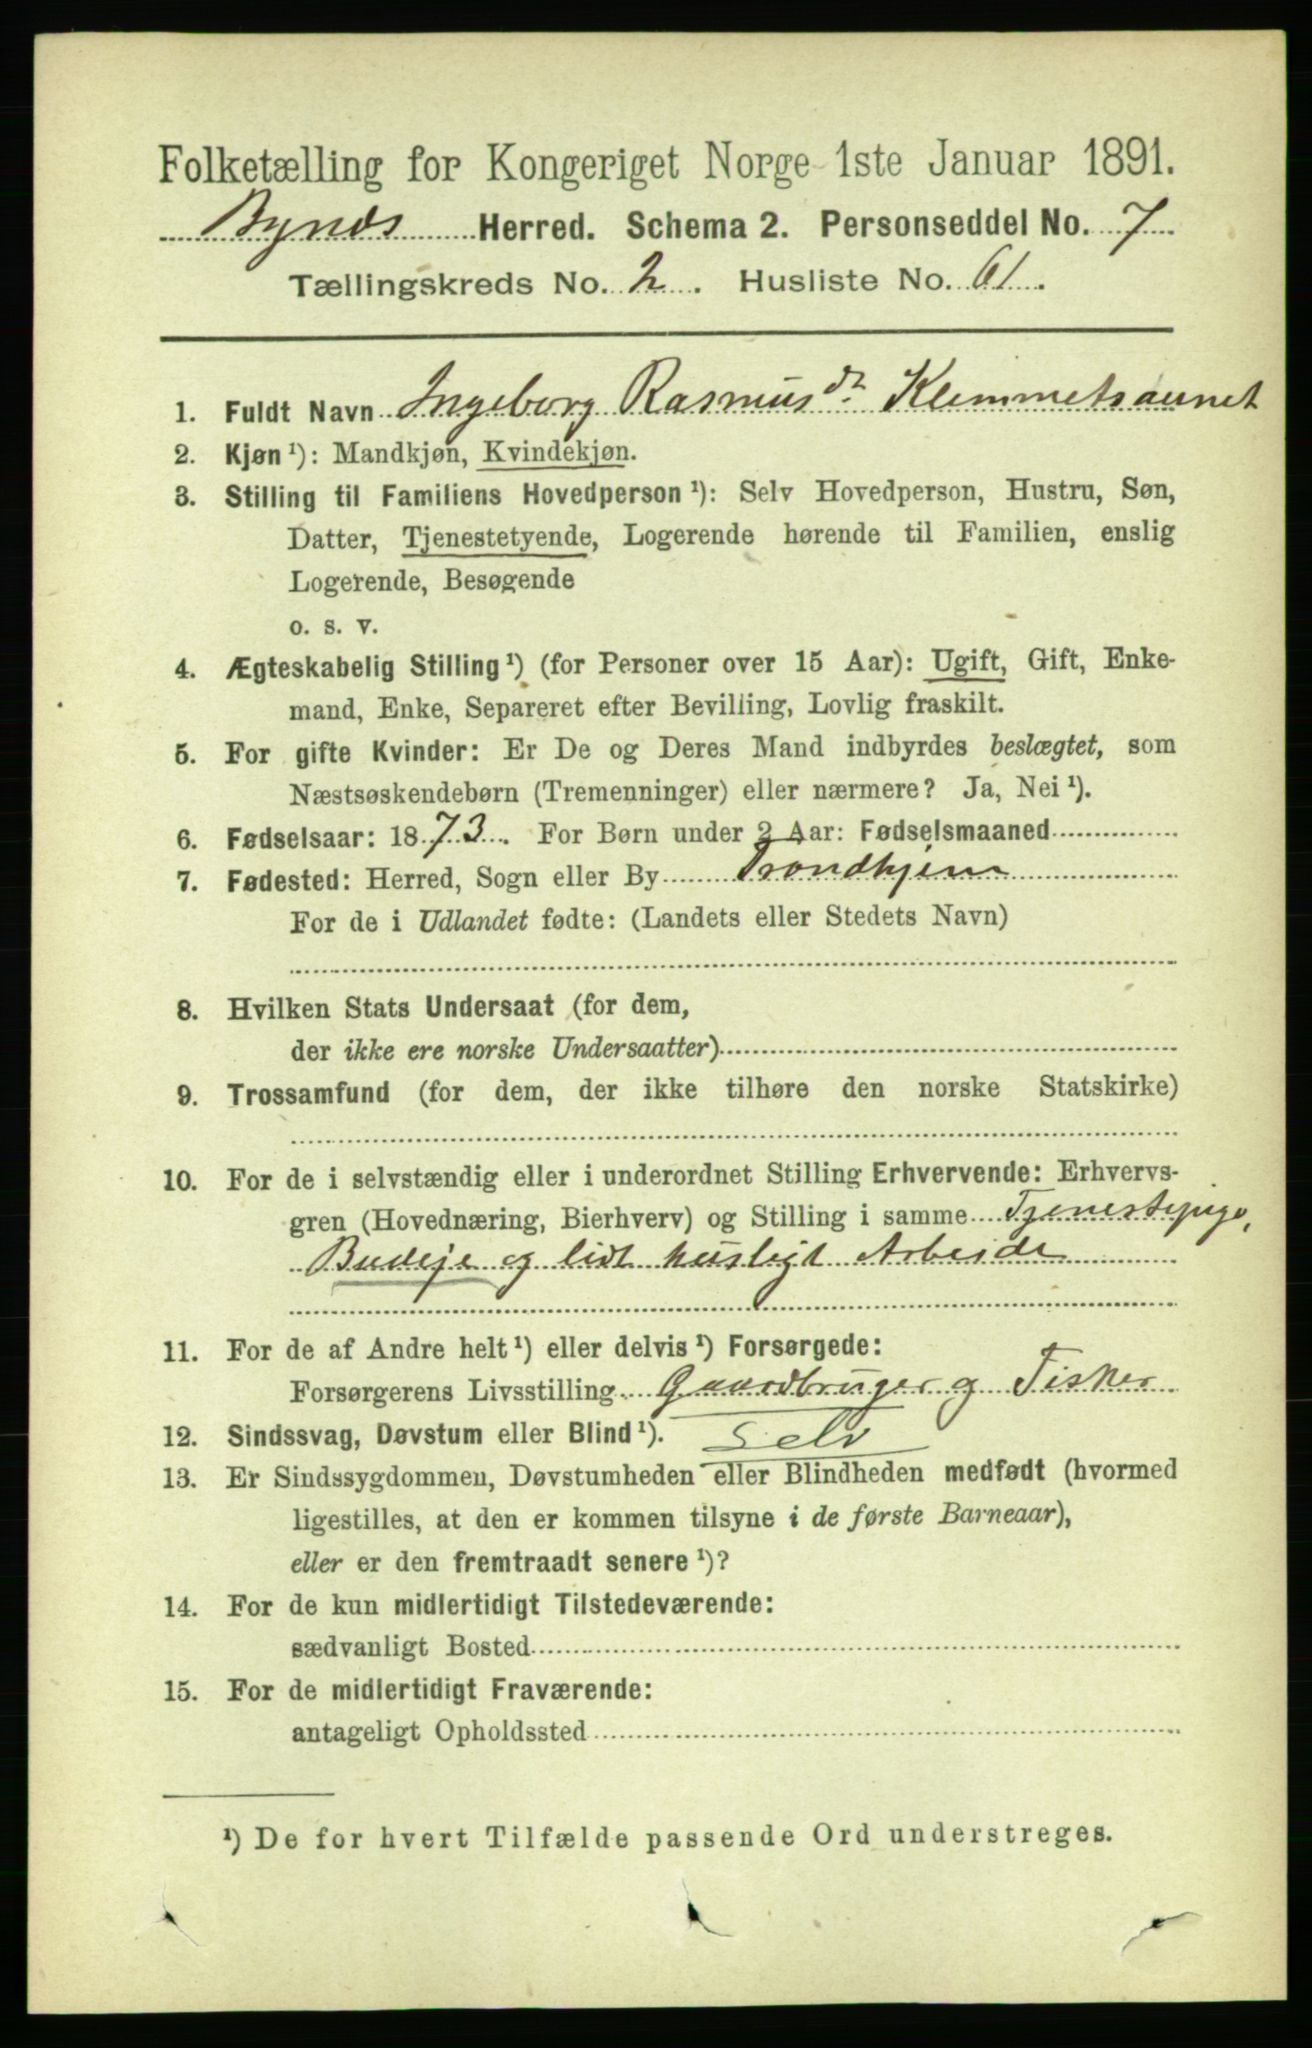 Folketælling for Kongeriget Norge 1ste Januar 1891.
Bynes Herred. Schema 2. Personseddel No. 7
Tællingskreds No. 2. Husliste No. 61.
1. Fuldt Navn Ingeborg Rasmusdr. Klemmetsaunet
2. Kjøn ¹): Mandkjøn, Kvindekjøn.
3. Stilling til Familiens Hovedperson ¹): Selv Hovedperson, Hustru, Søn,
Datter, Tjenestetyende, Logerende hørende til Familien, enslig
Logerende, Besøgende
o. s. v.
4. Ægteskabelig Stilling ¹) (for Personer over 15 Aar): Ugift, Gift, Enke-
mand, Enke, Separeret efter Bevilling, Lovlig fraskilt.
5. For gifte Kvinder: Er De og Deres Mand indbyrdes beslægtet, som
Næstsøskendebørn (Tremenninger) eller nærmere? Ja, Nei ¹).
6. Fødselsaar: 1873. For Børn under 2 Aar: Fødselsmaaned
7. Fødested: Herred, Sogn eller By Trondhjem
For de i Udlandet fødte: (Landets eller Stedets Navn)
8. Hvilken Stats Undersaat (for dem,
der ikke ere norske Undersaatter)
9. Trossamfund (for dem, der ikke tilhøre den norske Statskirke)
10. For de i selvstændig eller i underordnet Stilling Erhvervende: Erhvervs-
gren (Hovednæring, Bierhverv) og Stilling i samme Tjenestepige,
Budeje og lidt husligt Arbeide
11. For de af Andre helt ¹) eller delvis ¹) Forsørgede:
Forsørgerens Livsstilling Gaardbruger og Fisker
12. Sindssvag, Døvstum eller Blind ¹). Selv
13. Er Sindssygdommen, Døvstumheden eller Blindheden medfødt (hvormed
ligestilles, at den er kommen tilsyne i de første Barneaar),
eller er den fremtraadt senere ¹)?
14. For de kun midlertidigt Tilstedeværende:
sædvanligt Bosted
15. For de midlertidigt Fraværende:
antageligt Opholdssted
¹) De for hvert Tilfælde passende Ord understreges.